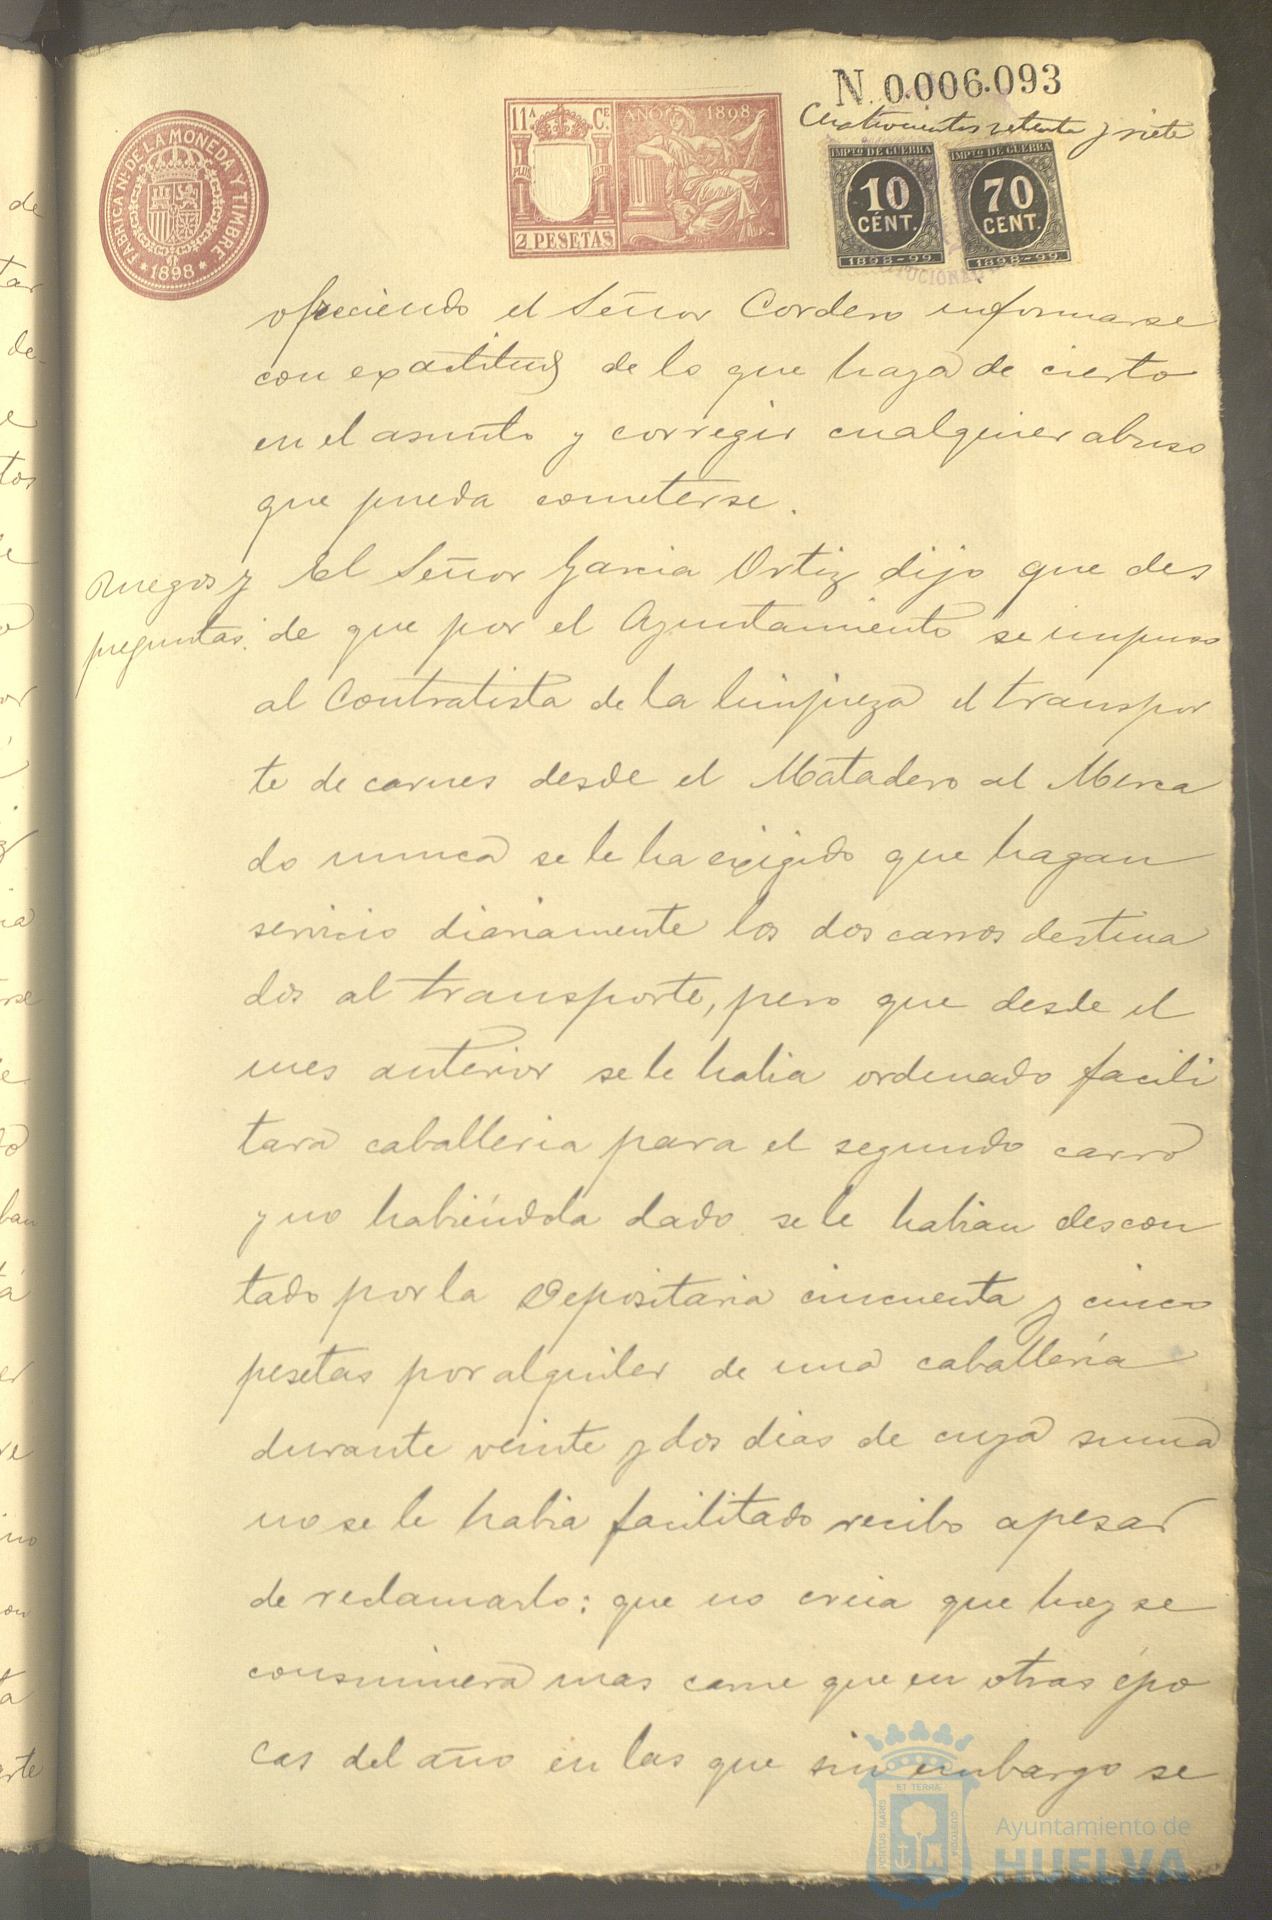 N. 0.006.093
Cuatrocientos setenta y siete
FABRICA Nl. DE LA MONEDA Y TIMBRE
* 1898 *
11ª Ce
AÑO 1898
PLUS
2 PESETAS
IMPTO DE GUERRA
10
CÉNT.
1898-99
IMPTO DE GUERRA
70
CENT.
1898-99
ofreciendo el Señor Cordero informarse
con exactitud de lo que haya de cierto
en el asunto y corregir cualquier abuso
que pueda cometerse.
Ruegos y
preguntas.
El Señor Garcia Ortiz dijo que des
de que por el Ayuntamiento se impuso
al Contratista de la limpieza el transpor
te de carnes desde el Matadero al Merca
do nunca se le ha exigido que hagan
servicio diariamente los dos carros destina
dos al transporte, pero que desde el
mes anterior se le habia ordenado facili
tara caballeria para el segundo carro
y no habiéndola dado se le habian descon
tado por la Depositaria cincuenta y cinco
pesetas por alquiler de una caballería
durante veinte y dos dias de cuya suma
no se le habia facilitado recibo apesar
de reclamarlo: que no creia que hoy se
consumiera mas carne que en otras épo
cas del año en las que sin embargo se
PORTUS MARIS
ET TERRAE
CUSTODIA
Ayuntamiento de
HUELVA